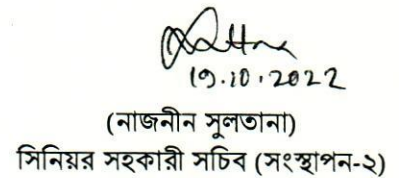 19.10.2022
(নাজনীন সুলতানা)
সিনিয়র সহকারী সচিব (সংস্থাপন-২)